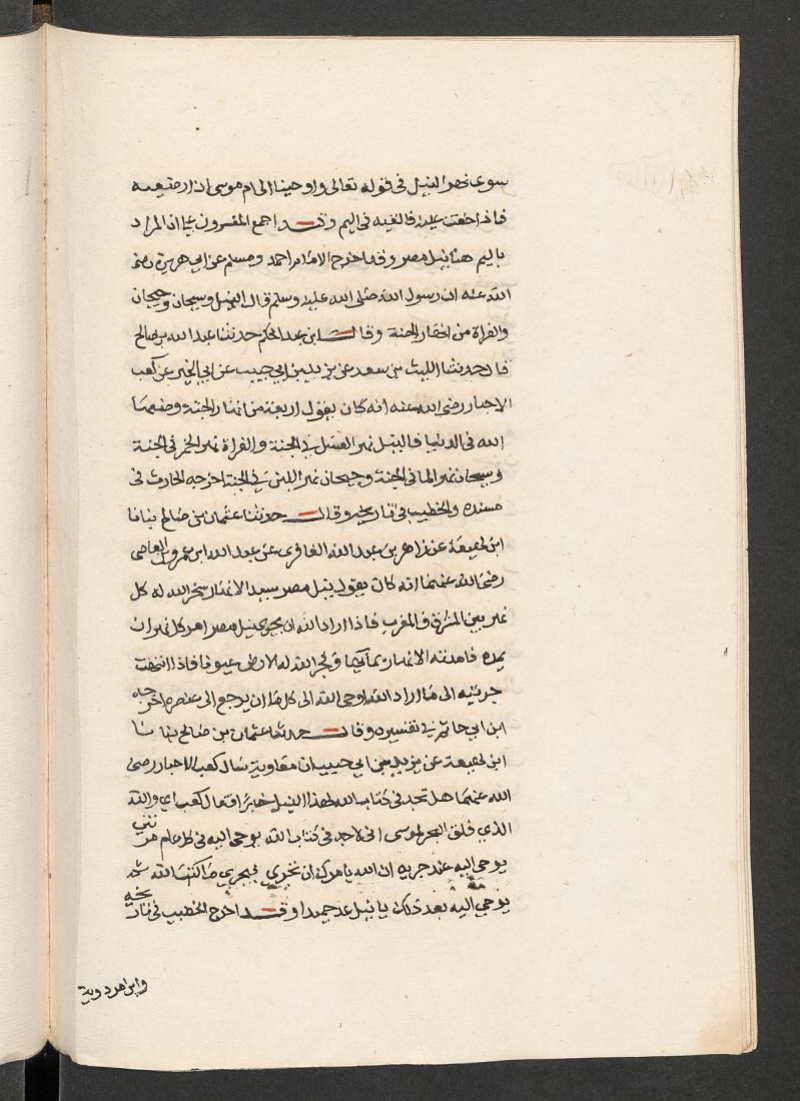 سوى نهر النيل فى قوله تعالى واوحينا الى ام موسى ان ارضعيه
فاذا خفت عليه فالقيه فى اليم وقد اجمع المفسرون على ان المراد
باليم هنا نيل مصر وقد اخرج الامام احمد ومسلم عن ابى هريرة رضى
الله عنه ان رسول الله صلى الله عليه وسلم قال النيل وسيحان وجيحان
والفراة من انهار الجنة وقال ابن عبد الحكم حدثنا عبد الله بن صالح
قال حدثنا الليث بن سعد عن يزيد بن ابى حبيب عن ابى الخير عن كعب
الاحبار رضى الله عنه انه كان يقول اربعة من انهار الجنة وضعها
الله فى الدنيا فالنيل نهر العسل فى الجنة والفراة نهر الخمر فى الجنة
وسيحان نهر الما فى الجنة وجيحان نهر اللبن فى الجنة اخرجه الحارث فى
مسنده والخطيب فى تاريخه وقال حدثنا عثمان بن صالح ثنا
ابن لهيعة عن زاهر بن عبد الله الغافرى عن عبد الله ابن عمرو بن العاصى
رضى الله عنهما انه كان يقول نيل مصر سيد الانهار سخر الله له كل
نهر بين المشرق والمغرب فاذا اراد الله ان يجرى نيل مصر امر كل نهر ان
يمده فامدته الانهار بمآئها وفجر الله له الارض عيونا فاذا انتهت
جريته الى ما اراد الله اوحى الله الى كل ما ان يرجع الى عنصره اخرجه
ابن ابى حاتم فى تفسيره وقال حدثنا عثمان بن صالح ثنا
ابن لهيعة عن يزيد بن ابى حبيب ان معاوية سال كعب الاحبار رضى
الله عنهما هل تجد فى كتاب الله لهذا النيل خبرا فقال كعب اى والله
الذي فلق البحر لموسى انى لاجد فى كتاب الله يوحى اليه فى كل عام مرتين
يوحى اليه عند جريه ان الله يامرك ان تجري فيجري ما كتب الله ثم
يوحي اليه بعد ذلك يا نيل عد حميدا وقد اخرج الخطيب فى تاريخه
وابن مردوية